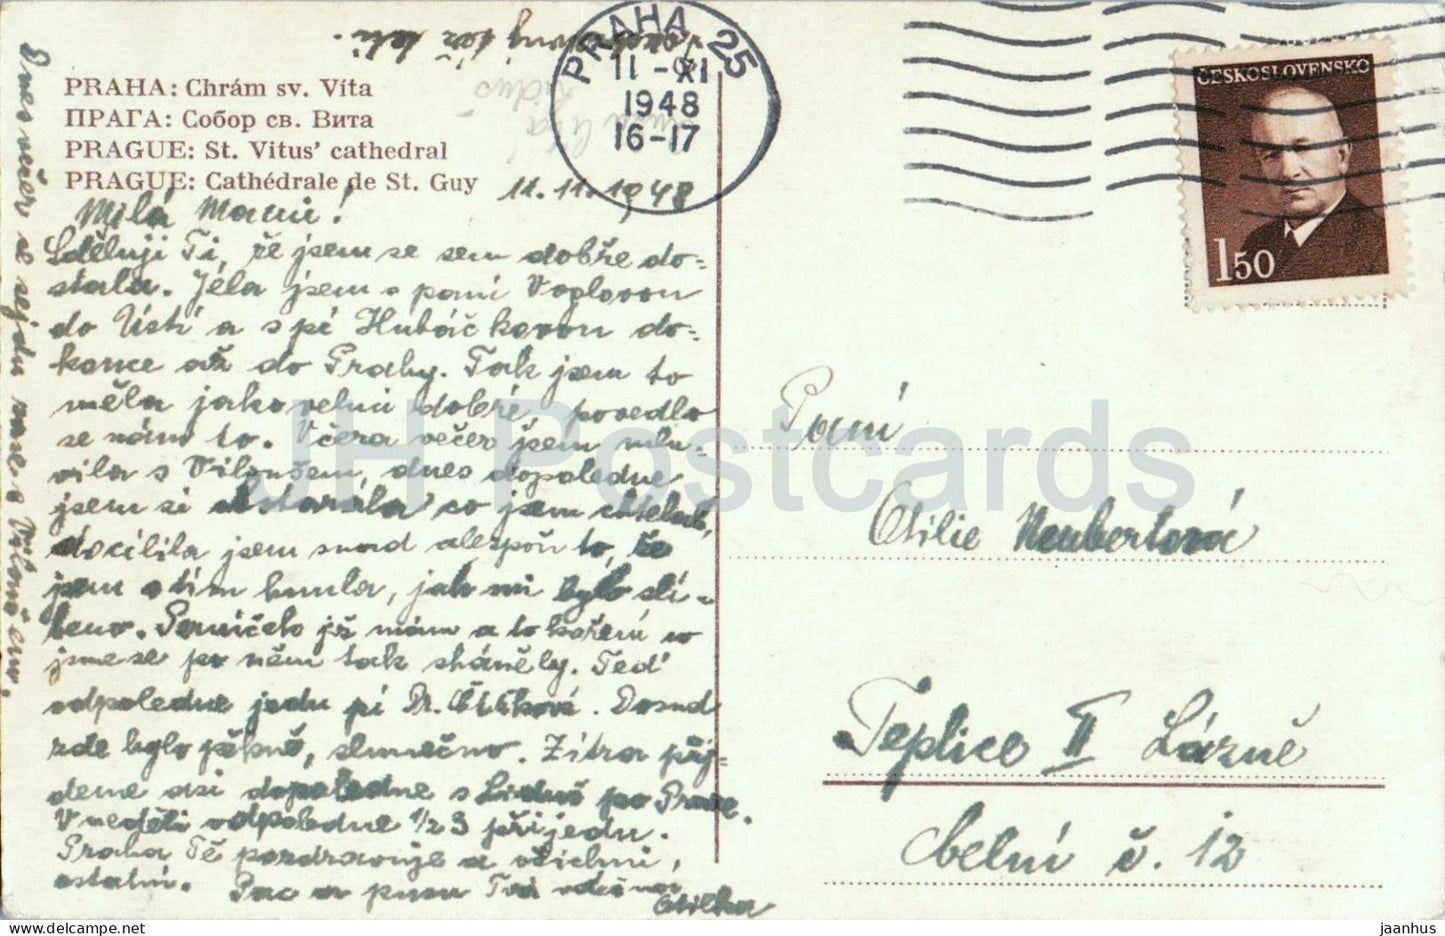 PRAHA: Chrám sv. Víta
ПРАГА: Собор св. Вита
PRAGUE: St. Vitus' cathedral
PRAGUE: Cathédrale de St. Guy
PRAHA 25
11 - XI
1948
16-17
ČESKOSLOVENSKO
1.50
11.11.1948
Milá
Sděluji Ti, že jsem se sem dobře do-
stala. Jela jsem s paní Voglovou
do Ústí a s pí Hubáčkovou do-
konce až do Prahy. Tak jsem to
měla jako velmi dobré, povedlo
se nám to. Včera večer jsem mlu-
vila s Viloušem, dnes dopoledne
jsem si obstarala co jsem chtěla,
docílila jsem snad alespoň to, že
jsem s tím hnula, jak mi bylo slí-
beno. Perníček již mám a to koření co
jsme se po něm tak sháněly. Teď
odpoledne jedu pí Dr.
Dosud
zde bylo pěkně, slunečno. Zítra půj-
deme asi dopoledne s Liduš po Praze.
V neděli odpoledne 1/2 3 přijedu.
Praha Tě pozdravuje a všichni
ostatní.
Pac a pusu Tvá vděčná
Otilka
Dnes večer se sejdu zase s Viloušem,
Paní
Otilie Neubertová
Teplice II Lázně
čelní č. 12
JH Postcards
delcampe.net
jaanhus